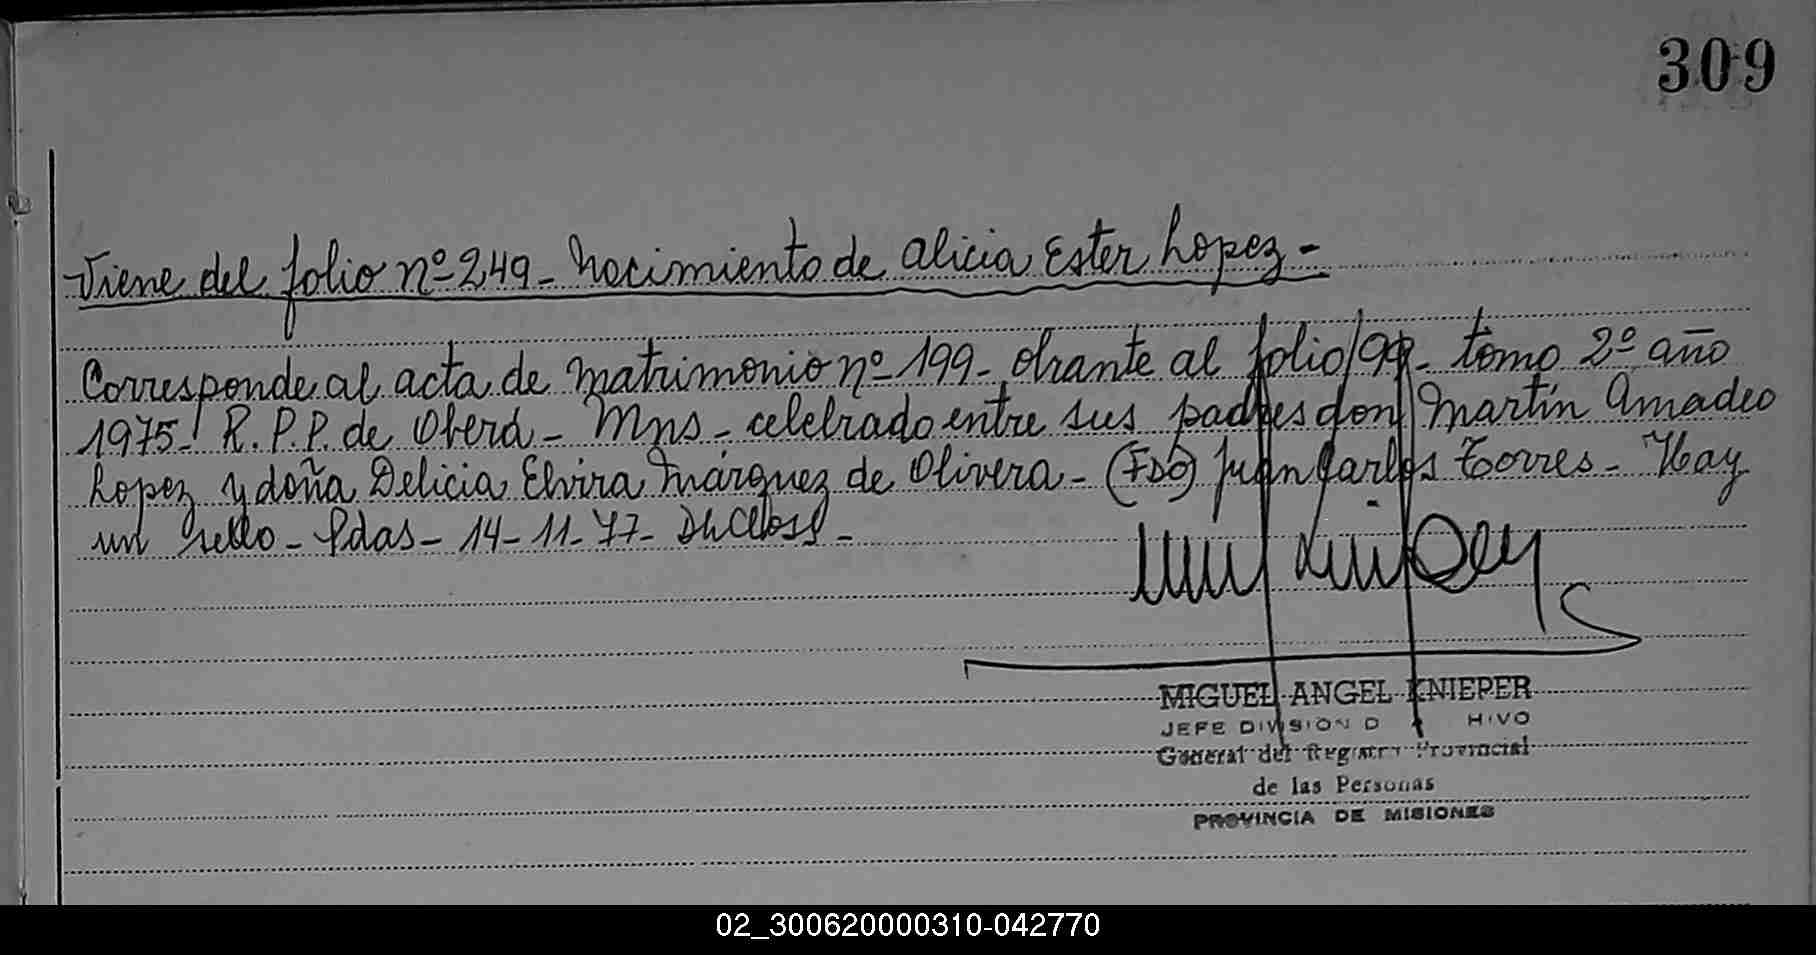 309
Viene del folio nº 249 - Nacimiento de Alicia Ester Lopez -
Corresponde al acta de matrimonio nº 199 - obrante al folio 99 - tomo 2º año
1975 - R.P.P. de Oberá - Mns - celebrado entre sus padres don Martín Amadeo
Lopez y doña Delicia Elvira Márquez de Olivera - (FDO) Juan Carlos Torres - Hay
un sello - Pdas - 14 - 11 - 77 -
MIGUEL ANGEL KNIEPER
JEFE DIVISION D HIVO
General del Registro Provincial
de las Personas
PROVINCIA DE MISIONES
02_300620000310-042770